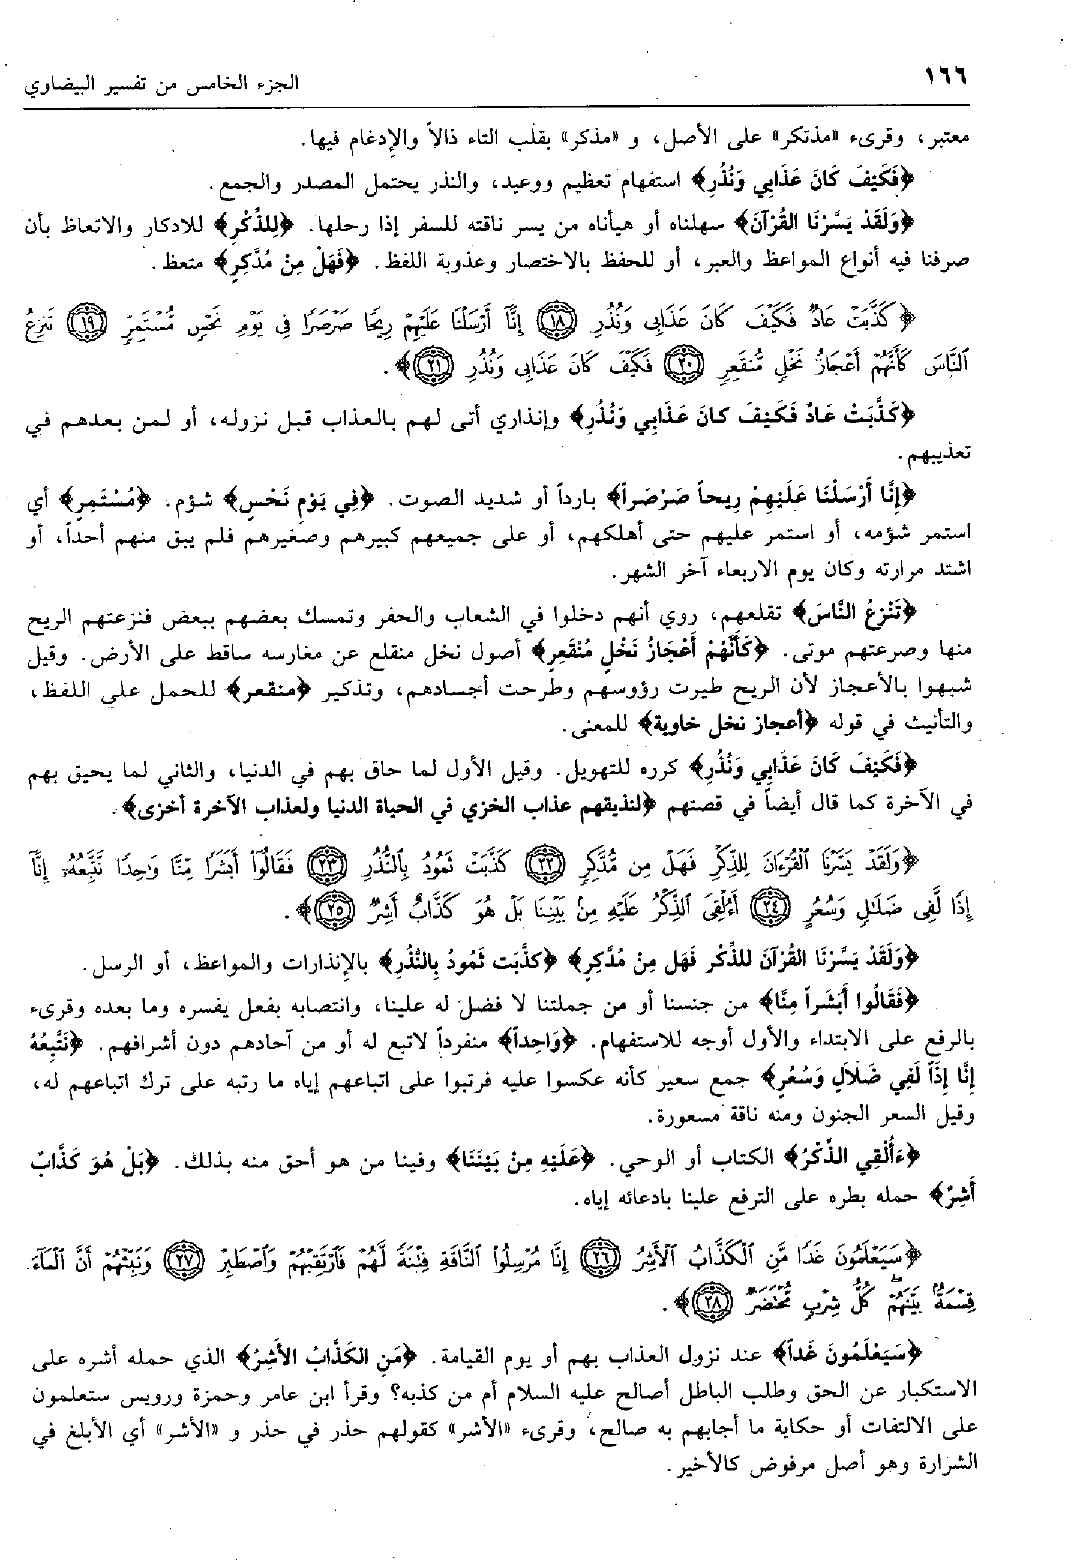 ١٦٦ الجزء الخامس من تفسير البيضاوي
معتبر، وقرىء «مذتكر» على الأصل، و «مذكر» بقلب التاء ذالاً والإدغام فيها.
﴿فَكَيْفَ كَانَ عَذَابِي وَنُذُرِ﴾ استفهام تعظيم ووعيد، والنذر يحتمل المصدر والجمع.
﴿وَلَقَدْ يَسَّرْنَا القُرْآنَ﴾ سهلناه أو هيأناه من يسر ناقته للسفر إذا رحلها. ﴿لِلذُّكْرِ﴾ للادكار والاتعاظ بأن
صرفنا فيه أنواع المواعظ والعبر، أو للحفظ بالاختصار وعذوبة اللفظ. ﴿فَهَلْ مِن مُدَّكِرٍ﴾ متعظ.
﴿كَذَّبَتْ عَادٌ فَكَيْفَ كَانَ عَذَابِي وَنُذُرِ ١٨ إِنَّآ أَرْسَلْنَا عَلَيْهِمْ رِيحًا صَرْصَرًا فِي يَوْمِ نَحْسٍ مُّسْتَمِرٍّ ١٩ تَنزِعُ
ٱلنَّاسَ كَأَنَّهُمْ أَعْجَازُ نَخْلٍ مُّنقَعِرٍ ٢٠ فَكَيْفَ كَانَ عَذَابِي وَنُذُرِ ٢١﴾.
﴿كَذَّبَتْ عَادٌ فَكَيْفَ كانَ عَذَابِي وَنُذُرِ﴾ وإنذاري أتى لهم بالعذاب قبل نزوله، أو لمن بعدهم في
تعذيبهم.
﴿إِنَّا أَرْسَلْنَا عَلَيْهِمْ رِيحاً صَرْصَراً﴾ بارداً أو شديد الصوت. ﴿فِي يَوْمِ نَحْسٍ﴾ شؤم. ﴿مُسْتَمِرٍ﴾ أي
استمر شؤمه، أو استمر عليهم حتى أهلكهم، أو على جميعهم كبيرهم وصغيرهم فلم يبق منهم أحداً، أو
اشتد مرارته وكان يوم الاربعاء آخر الشهر.
﴿تَنْزِعُ النَّاسَ﴾ تقلعهم، روي أنهم دخلوا في الشعاب والحفر وتمسك بعضهم ببعض فنزعتهم الريح
منها وصرعتهم موتى. ﴿كَأَنَّهُمْ أَعْجَازُ نَخْلٍ مُنْقَعِرٍ﴾ أصول نخل منقلع عن مغارسه ساقط على الأرض. وقيل
شبهوا بالأعجاز لأن الريح طيرت رؤوسهم وطرحت أجسادهم، وتذكير ﴿منقعر﴾ للحمل على اللفظ،
والتأنيث في قوله ﴿أعجاز نخل خاوية﴾ للمعنى.
﴿فَكَيْفَ كَانَ عَذَابِي وَنُذُرِ﴾ كرره للتهويل. وقيل الأول لما حاق بهم في الدنيا، والثاني لما يحيق بهم
في الآخرة كما قال أيضاً في قصتهم ﴿لنذيقهم عذاب الخزي في الحياة الدنيا ولعذاب الآخرة أخزى﴾.
﴿وَلَقَدْ يَسَّرْنَا ٱلْقُرْءَانَ لِلذِّكْرِ فَهَلْ مِن مُّدَّكِرٍ ٢٢ كَذَّبَتْ ثَمُودُ بِٱلنُّذُرِ ٢٣ فَقَالُوٓا۟ أَبَشَرًا مِّنَّا وَٰحِدًا نَّتَّبِعُهُۥٓ إِنَّآ
إِذًا لَّفِي ضَلَٰلٍ وَسُعُرٍ ٢٤ أَءُلْقِيَ ٱلذِّكْرُ عَلَيْهِ مِنۢ بَيْنِنَا بَلْ هُوَ كَذَّابٌ أَشِرٌ ٢٥﴾.
﴿وَلَقَدْ يَسَّرْنَا القُرْآنَ للذِّكْرِ فَهَل مِنْ مُدَّكِرٍ﴾ ﴿كذَّبَت ثَمُودُ بِالنُّذُرِ﴾ بالإنذارات والمواعظ، أو الرسل.
﴿فَقَالُوا أَبَشَراً مِنَّا﴾ من جنسنا أو من جملتنا لا فضل له علينا، وانتصابه بفعل يفسره وما بعده وقرىء
بالرفع على الابتداء والأول أوجه للاستفهام. ﴿وَاحِداً﴾ منفرداً لاتبع له أو من آحادهم دون أشرافهم. ﴿نَتَّبِعُهُ
إِنَّا إِذَاً لَفِي ضَلَالٍ وَسُعُرٍ﴾ جمع سعير كأنه عكسوا عليه فرتبوا على اتباعهم إياه ما رتبه على ترك اتباعهم له،
وقيل السعر الجنون ومنه ناقة مسعورة.
﴿ءَأُلْقِي الذِّكْرُ﴾ الكتاب أو الوحي. ﴿عَلَيْهِ مِنْ بَيْنَنَا﴾ وفينا من هو أحق منه بذلك. ﴿بَلْ هُوَ كَذَّابٌ
أَشِرٌ﴾ حمله بطره على الترفع علينا بادعائه إياه.
﴿سَيَعْلَمُونَ غَدًا مَّنِ ٱلْكَذَّابُ ٱلْأَشِرُ ٢٦ إِنَّا مُرْسِلُوا۟ ٱلنَّاقَةِ فِتْنَةً لَّهُمْ فَٱرْتَقِبْهُمْ وَٱصْطَبِرْ ٢٧ وَنَبِّئْهُمْ أَنَّ ٱلْمَآءَ
قِسْمَةٌۢ بَيْنَهُمْ كُلُّ شِرْبٍ مُّحْتَضَرٌ ٢٨﴾.
﴿سَيَعْلَمُونَ غَداً﴾ عند نزول العذاب بهم أو يوم القيامة. ﴿مَنِ الكَذَّابُ الأَشِرُ﴾ الذي حمله أشره على
الاستكبار عن الحق وطلب الباطل أصالح عليه السلام أم من كذبه؟ وقرأ ابن عامر وحمزة ورويس ستعلمون
على الالتفات أو حكاية ما أجابهم به صالح، وقرىء «الأشر» كقولهم حذر في حذر و «الأشر» أي الأبلغ في
الشرارة وهو أصل مرفوض كالأخير.